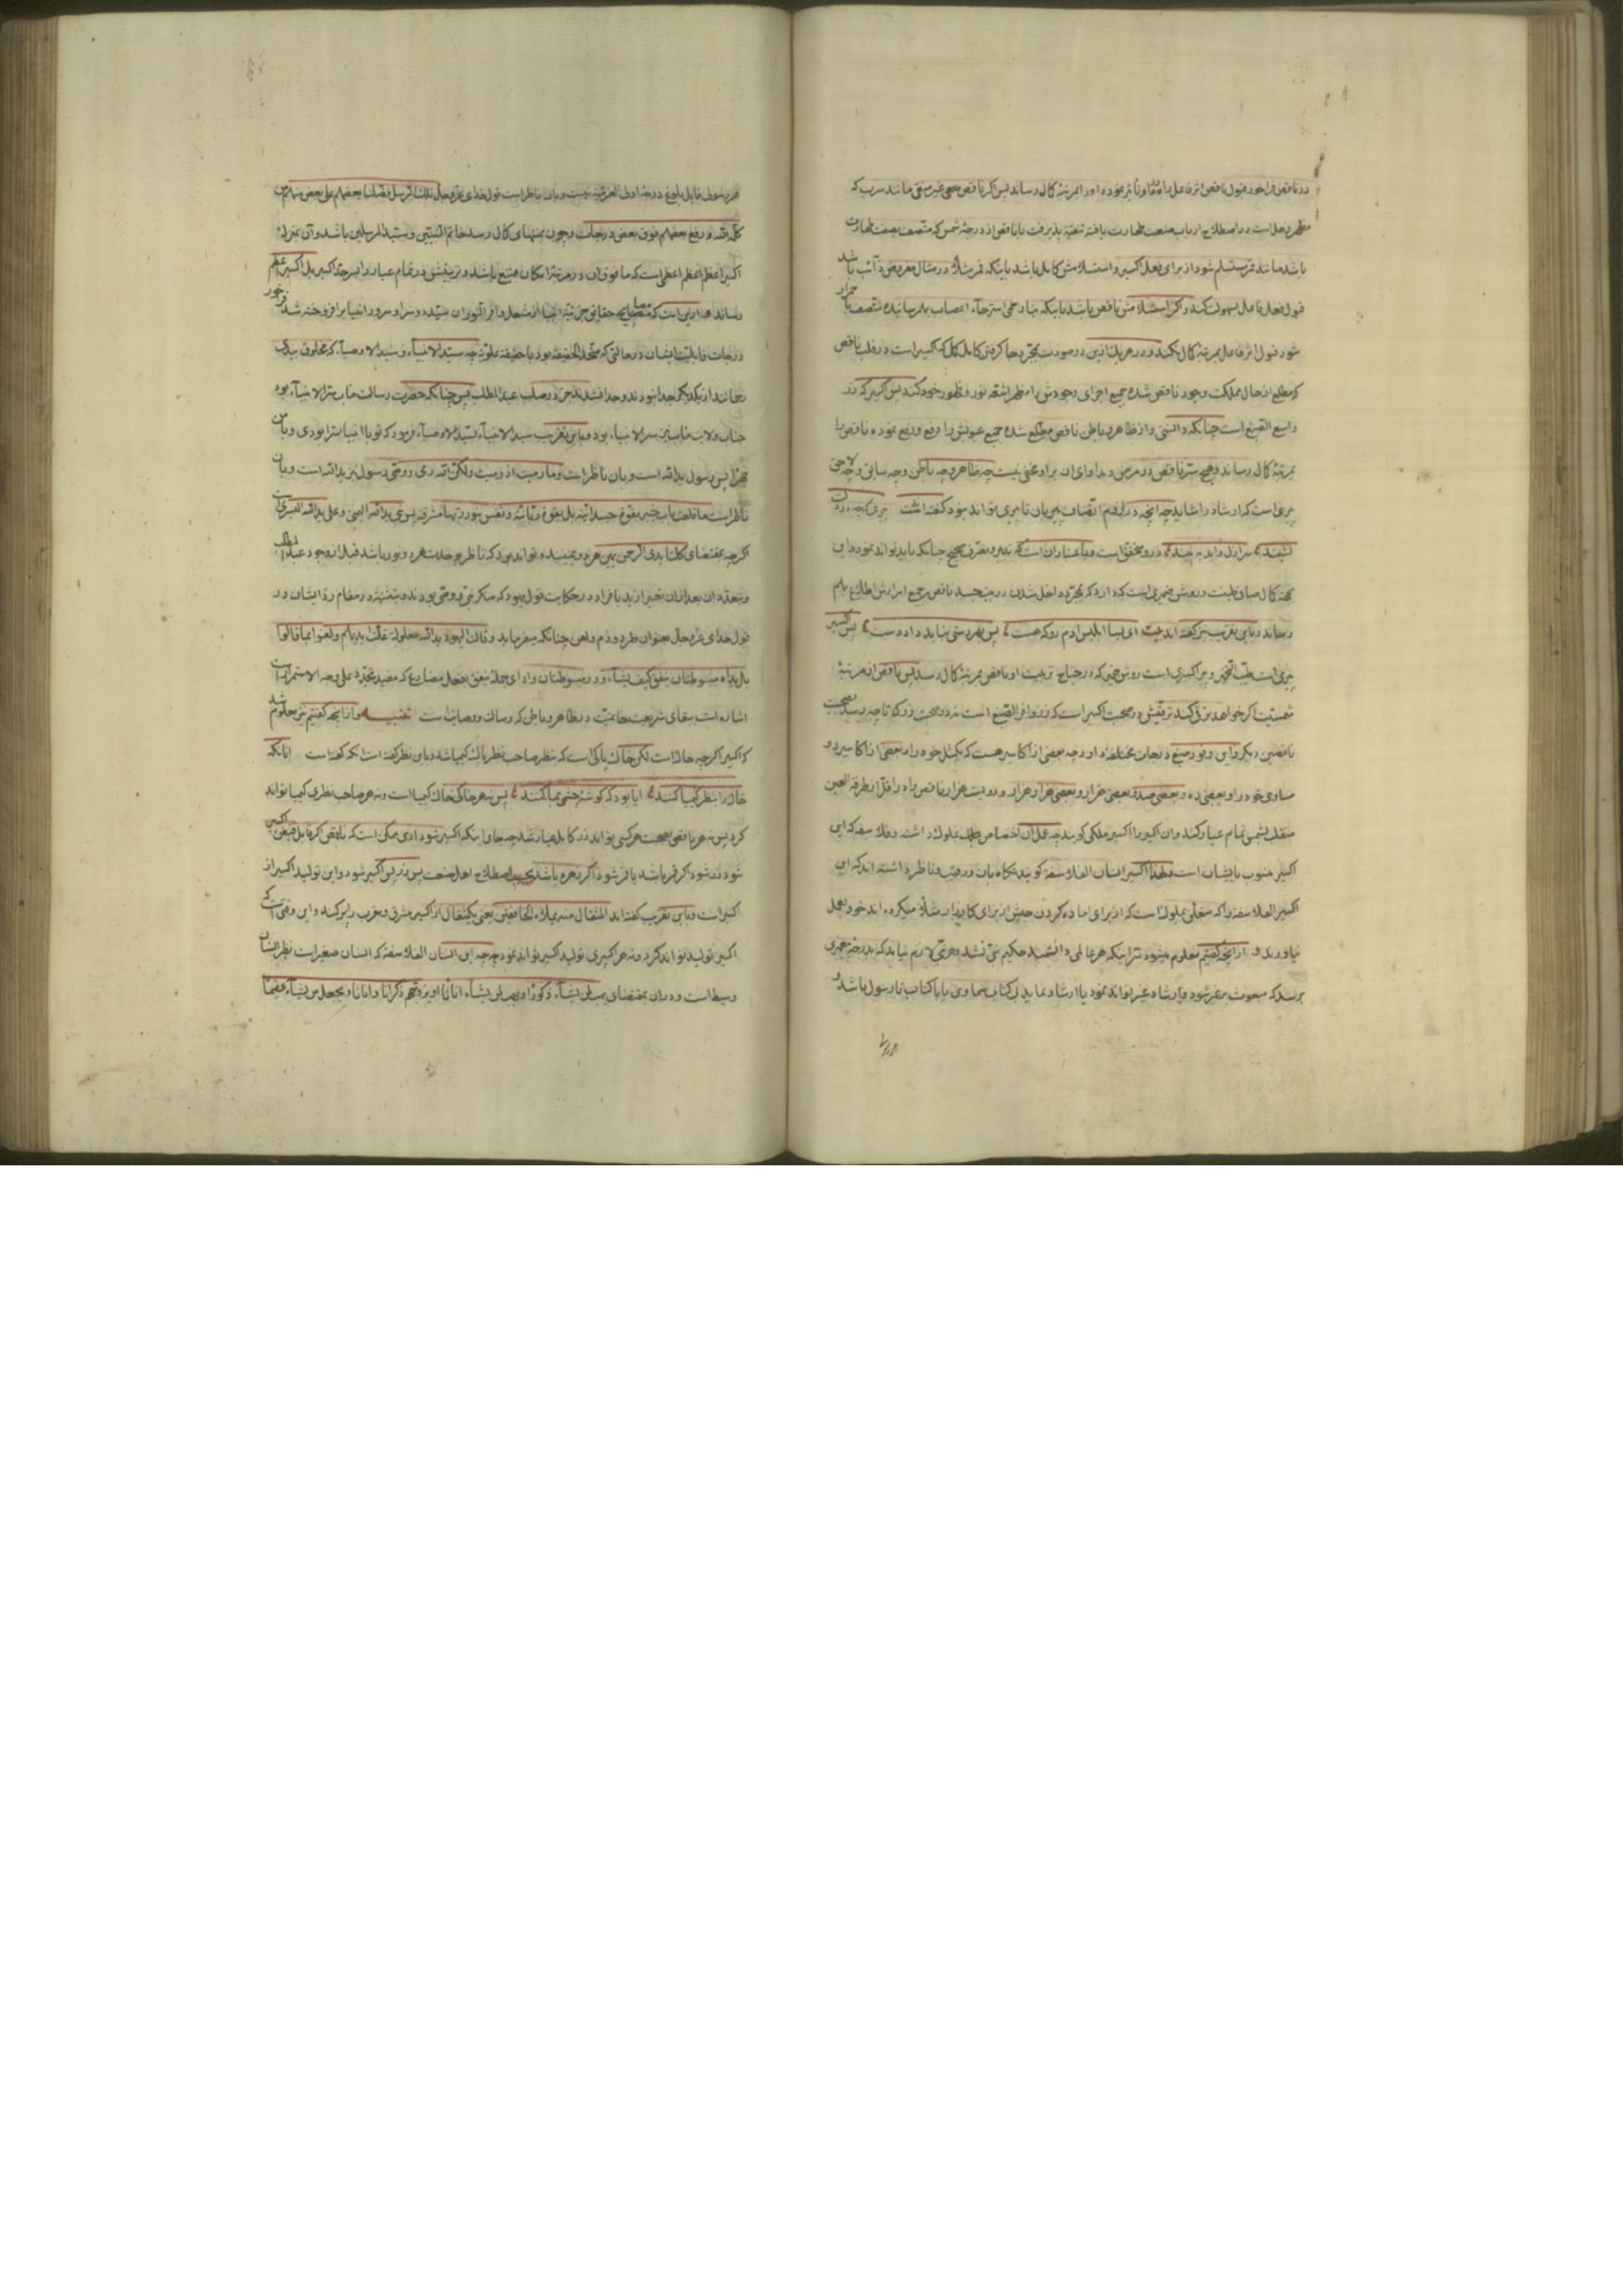 در ناقص فراخور قبول ناقص اثر فاعل را و او را بمرتبهٔ کمال رساند پس اگر ناقص غیر منقی مانند سرب که
مطهر زحل است در اصطلاح ارباب صنعت طهارت یافته تنقیه پذیرفت یا ناقص از درجهٔ شمس که متصف بصفت طهارت
باشد مانند قمر مستلم شود از برای فعل اکسیر و استسلامش کامل باشد باینکه قمر مثلا در مثال مفروض ذائب باشد
قبول فعل فاعل بسهولت کند و اگر استسلامش ناقص باشد باینکه
شود قبول اثر فاعل بمرتبهٔ کمال نکند و در هر یک ازین دو صورت بمجرد جا کردن کامل مکمل که اکسیر است در قلب ناقص
که مطلع از حال مملکت وجود ناقص شده جمیع اجزای وجودش را مظهر اشعهٔ نور و ظهور خود کند پس اکسیر که زر
واسع الصبغ است چنانکه دانستی و از ظاهر و باطن ناقص مطلع شده جمیع عیوبش را دفع و رفع نموده ناقص را
بمرتبهٔ کمال رساند و هیچ سر ناقص در مرض و مداوای ان بر او مخفی نیست چه ظاهر و چه باطن و چه سابق و چه لاحق
پیری است که ارشاد را شاید چه انچه در لزوم اتصاف پیر بان تا پیری تواند نمود گفته‌اند
در و متحقق است و باعتبار ان است که تدبیر و تصرف صحیح چنانکه باید تواند نمود و این
بجهة کمال صافی طینت و روشن ضمیری است که دارد که بمجرد داخل شدن در جسد ناقص بر جمیع اسرارش اطلاع بهم
رساند و باین تقریب نیز گفته‌اند بیت ای بسا ابلیس ادم رو که هست پس بهر دستی نباید داد دست پس اکسیر
پیری است طیب التخمیر و پیر اکسیری است روشن ضمیر که در جناح تربیت او ناقص بمرتبهٔ کمال رسد پس ناقص از مرتبهٔ
شمسیت اگر خواهد ترقی کند ترقیش در صحبت اکسیر است که زر وافر الصبغ است نه در صحبت زر کم تا چه رسد بصحبت
ناقصین دیگر و این وفور صبغ درجات مختلفه دارد چه بعضی از اکاسیر هست که یک مثل خود را و بعضی از اکاسیر دو
مساوی خود را و بعضی ده و بعضی صد و بعضی هزار و بعضی هزار هزار و دویست هزار ناقص راه را اقل از طرفة العین
منقلب بشمس تمام عیار کند و ان اکسیر را اکسیر ملکی گویند چه عمل ان اختصاص بطلب ملوک داشته و فلاسفه که این
اکسیر منسوب بایشان است و لهذا اکسیر انسان الفلاسفه گویند نگاه بان و رقیب و ناظر داشته‌اند که این
اکسیر الفلاسفه را که متعلق بملوک است که از برای اماده کردن جیش از برای کارزار مثلا میکرده‌اند خود بعمل
نیاورند و از انچه گفتیم معلوم میشود سر اینکه هر عالمی و دانشمند حکیم نبی نشد و هر نبی لازم نیاید که بدرجهٔ پیغمبری
برسد که مبعوث بر غیر شود و ارشاد غیر تواند نمود یا ارشاد نماید بی کتاب سماوی یا با کتاب تا رسول باشد و
هر رسولی قابل بلوغ درجهٔ اولی العزمیة نیست و بان ناظر است قول خدای عز و جل تلک الرسل فضلنا بعضهم علی بعض منهم من
کلم الله و رفع بعضهم فوق بعض درجات و چون بمنتهای کمال رسد خاتم النبیین و سید المرسلین باشد و آن بمنزلهٔ
اکسیر اعظم اعظم اعظمی است که ما فوق ان در مرتبهٔ امکان ممتنع باشد و تربیتش زر تمام عیار را بسر حد اکسیر بل اکسیر اعظم
رساند و ازین است که مصابیح حقایق جزئیهٔ انبیا از مشعل وافر النور ان سید و سرور انبیا بر افروخته شد فراخور
درجات قابلیت ایشان در حالتی که متحد الحقیقه بود با حقیقة علویه چه سید الانبیاء و سید الاوصیاء که مخلوق بیدی
رحمانند از یکدیگر جدا نبودند و جدا نشدند جز در صلب عبد المطلب پس چنانکه حضرت رسالت ماب سر الانبیاء بود
جناب ولایت ماب نیز سر الانبیاء بود و باین تقریب سید الانبیاء بسید الاوصیاء فرمود که تو با انبیا سرا بودی و با من
جهرا پس رسول ید الله است و بان ناظر است و ما رمیت اذ رمیت و لکن الله رمی و وصی رسول نیز ید الله است و بان
ناظر است ما قلعت باب خیبر بقوة جسدانیة بل بقوة ربانیة و نفس بنور ربها مشرقة پس نبی ید الله الیمنی و علی ید الله الیسری است
اگرچه بمقتضای کلتا یدی الرحمن یمین هر دو یمینند و تواند بود که ناظر بوحدت هر دو نور باشد قبل از وجود عبد المطلب
و تعدد ان بعد از ان تعبیر از ید بافراد در حکایت قول یهود که منکر نبی و وصی بودند و بتثنیه در مقام رد ایشان در
قول خدای عز و جل بعنوان طرد و ذم و لعن چنانکه میفرماید و قالت الیهود ید الله مغلولة غلت ایدیهم و لعنوا بما قالوا
بل یداه مبسوطتان ینفق کیف یشاء و در مبسوطتان و ادای جملهٔ ینفق بفعل مضارع که مفید تجدد علی وجه الاستمرار است
اشاره است ببقای شریعت خاتمیت در ظاهر و باطن که رسالت و وصایت است تنبیه و از انچه گفتیم نیز معلوم شد
که اکسیر اگرچه خاک است لکن خاک پاکی است که بنظر صاحب نظر پاک کیمیا شد و باین نظر گفته است انکه گفته است انانکه
خاک را بنظر کیمیا کنند ایا بود که گوشهٔ چشمی بما کنند پس نه هر خاکی خاک کیمیا است و نه هر صاحب نظری کیمیا تواند
کرد پس نه هر ناقصی بصحبت هر کسی تواند زر کامل عیار شد چه جای اینکه اکسیر شود اری ممکن است که ناقص اگر قابل فیض اکسیر
شود زر شود اگر قمر باشد یا قمر شود اگر زهره باشد بحسب اصطلاح اهل صنعت پس زر پس اکسیر شود و این تولید اکسیر از
اکسیر است و باین تقریب گفته‌اند المثقال منه یملاء الخافقین یعنی یکمثقال از اکسیر مشرق و مغرب را پر کند و این وقتی است که
اکسیر تولید تواند کرد و نه هر اکسیری تولید اکسیر تواند نمود چه این انسان الفلاسفه که انسان صغیر است نظیر انسان
وسیط است و در ان بمقتضای یهب لمن یشاء ذکورا و یهب لمن یشاء اناثا او یزوجهم ذکرانا و اناثا و یجعل من یشاء عقیما